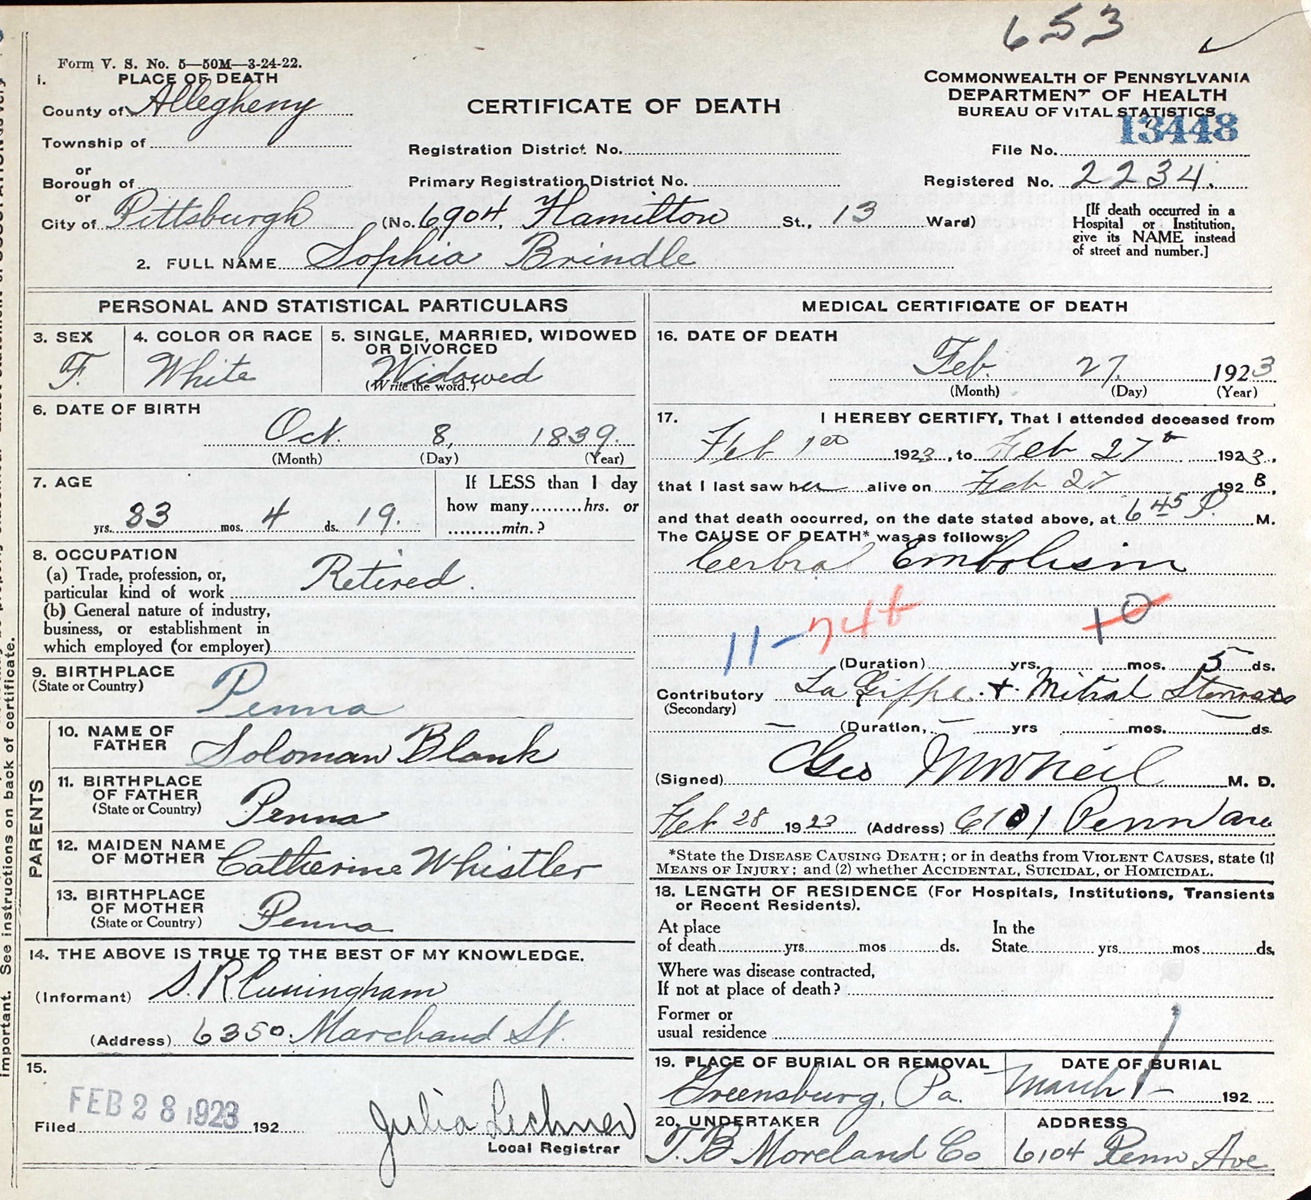 653
Form V. S. No. 5—50M—3-24-22.
1. PLACE OF DEATH
County of Allegheny
Township of
or
Borough of
or
City of Pittsburgh (No. 6904, Hamilton St., 13 Ward)
CERTIFICATE OF DEATH
Registration District No.
Primary Registration District No.
COMMONWEALTH OF PENNSYLVANIA
DEPARTMENT OF HEALTH
BUREAU OF VITAL STATISTICS
13448
File No.
Registered No. 2234.
[If death occurred in a
Hospital or Institution,
give its NAME instead
of street and number.]
2. FULL NAME Sophia Brindle
PERSONAL AND STATISTICAL PARTICULARS
3. SEX
F.
4. COLOR OR RACE
White
5. SINGLE, MARRIED, WIDOWED
OR DIVORCED
Widowed
(Write the word.)
6. DATE OF BIRTH
Oct. 8, 1839.
(Month) (Day) (Year)
7. AGE
yrs. 83 mos. 4 ds. 19.
If LESS than 1 day
how many hrs. or
min.?
8. OCCUPATION
(a) Trade, profession, or,
particular kind of work Retired.
(b) General nature of industry,
business, or establishment in
which employed (or employer)
9. BIRTHPLACE
(State or Country)
Penna
PARENTS
10. NAME OF
FATHER Soloman Blank
11. BIRTHPLACE
OF FATHER
(State or Country) Penna
12. MAIDEN NAME
OF MOTHER Catherine Whistler
13. BIRTHPLACE
OF MOTHER
(State or Country) Penna
14. THE ABOVE IS TRUE TO THE BEST OF MY KNOWLEDGE.
(Informant) S. R. Cuningham
(Address) 6350. Marchand St.
15.
FEB 28 1923
Filed 192
Julia Lechner
Local Registrar
MEDICAL CERTIFICATE OF DEATH
16. DATE OF DEATH
Feb. 27, 1923
(Month) (Day) (Year)
17. I HEREBY CERTIFY, That I attended deceased from
Feb 1 1923, to Feb 27 1923,
that I last saw her alive on Feb 27 1923,
and that death occurred, on the date stated above, at 6 45 P. M.
The CAUSE OF DEATH* was as follows:
Cerbral Embolism
11-74b 10
(Duration) yrs. mos. 5 ds.
Contributory La Gippe. + Mitral Stenosis
(Secondary)
(Duration, yrs mos. ds.
(Signed) Geo McNeil M. D.
Feb 28 1923 (Address) 6101 Penn ave
*State the DISEASE CAUSING DEATH; or in deaths from VIOLENT CAUSES, state (1)
MEANS OF INJURY; and (2) whether ACCIDENTAL, SUICIDAL, or HOMICIDAL.
18. LENGTH OF RESIDENCE (For Hospitals, Institutions, Transients
or Recent Residents).
At place
of death yrs. mos ds.
In the
State yrs. mos ds.
Where was disease contracted,
If not at place of death?
Former or
usual residence
19. PLACE OF BURIAL OR REMOVAL
Greensburg, Pa.
DATE OF BURIAL
March 1- 192
20. UNDERTAKER
T. B. Moreland Co
ADDRESS
6104 Penn Ave
important. See instructions on back of certificate.